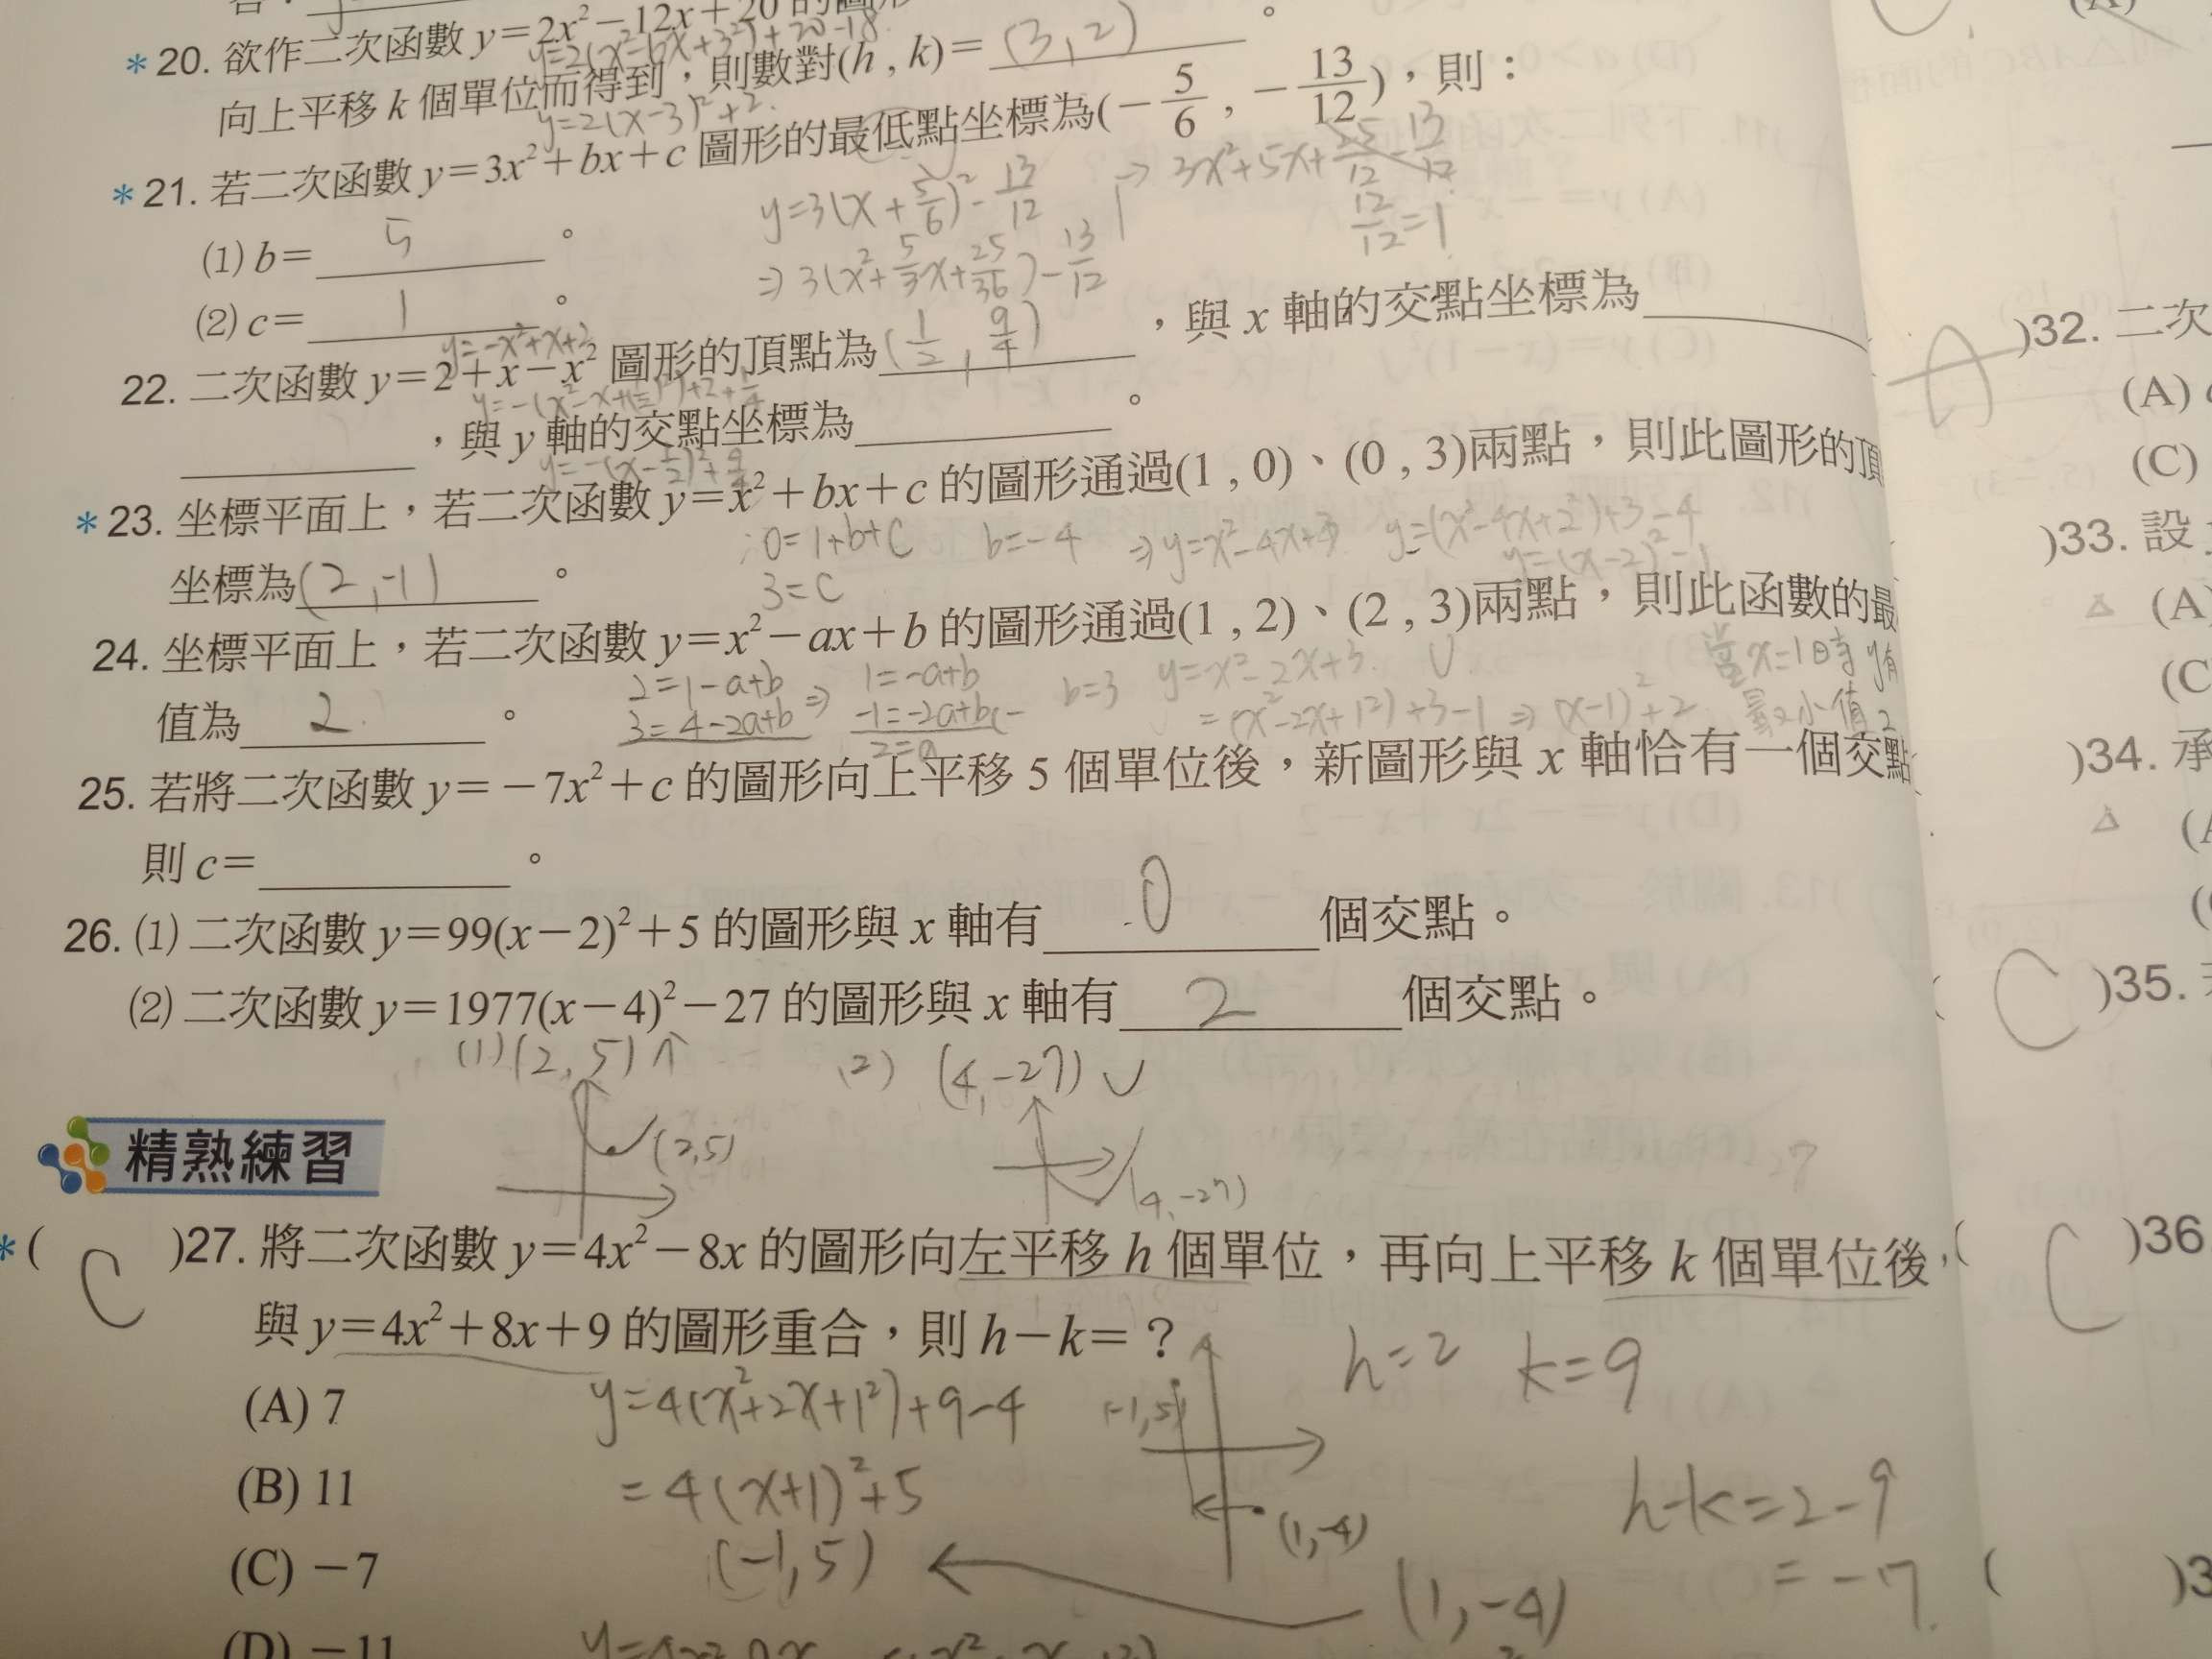 *20. 欲作二次函數 y=2x²-12x+20 的圖形
y=2(x²-6x+3²)+20-18
向上平移 k 個單位而得到,則數對(h , k)= (3,2) 。
y=2(x-3)²+2
*21. 若二次函數 y=3x²+bx+c 圖形的最低點坐標為(-5/6 , -13/12),則:
y=3(x+5/6)²-13/12 ⇒ 3x²+5x+25/12-13/12
12/12=1
(1) b= 5 。
⇒ 3(x²+5/3x+25/36)-13/12
(2) c= 1 。
y=-x²+x+2
22. 二次函數 y=2+x-x² 圖形的頂點為 (1/2, 9/4) ,與 x 軸的交點坐標為
y=-(x²-x+(1/2)²)+2+1/4
,與 y 軸的交點坐標為 。
y=-(x-1/2)²+9/4
*23. 坐標平面上,若二次函數 y=x²+bx+c 的圖形通過(1 , 0)、(0 , 3)兩點,則此圖形的頂
0=1+b+c b=-4 ⇒y=x²-4x+3 y=(x²-4x+2²)+3-4
3=c y=(x-2)²-1
坐標為 (2,-1) 。
24. 坐標平面上,若二次函數 y=x²-ax+b 的圖形通過(1 , 2)、(2 , 3)兩點,則此函數的最
2=1-a+b ⇒ 1=-a+b b=3 y=x²-2x+3 ∪ 當x=1時有
3=4-2a+b -1=-2a+b(- =(x²-2x+1²)+3-1 ⇒ (x-1)²+2 最小值2
2=a
值為 2 。
25. 若將二次函數 y=-7x²+c 的圖形向上平移 5 個單位後,新圖形與 x 軸恰有一個交點
則 c= 。
26. (1) 二次函數 y=99(x-2)²+5 的圖形與 x 軸有 0 個交點。
(2) 二次函數 y=1977(x-4)²-27 的圖形與 x 軸有 2 個交點。
(1) (2,5)↑ (2) (4,-27)∪
(2,5) (4,-27)
精熟練習
*( C )27. 將二次函數 y=4x²-8x 的圖形向左平移 h 個單位,再向上平移 k 個單位後,
與 y=4x²+8x+9 的圖形重合,則 h-k=?
h=2 k=9
(A) 7
y=4(x²+2x+1²)+9-4 (-1,5)
(B) 11
=4(x+1)²+5 (1,-4) h-k=2-9
(C) -7
(-1,5) ← (1,-4) =-7
(D) -11
)32. 二次
(A)
(C)
)33. 設
△ (A)
(C
)34. 承
△
( C )35.
( C )36